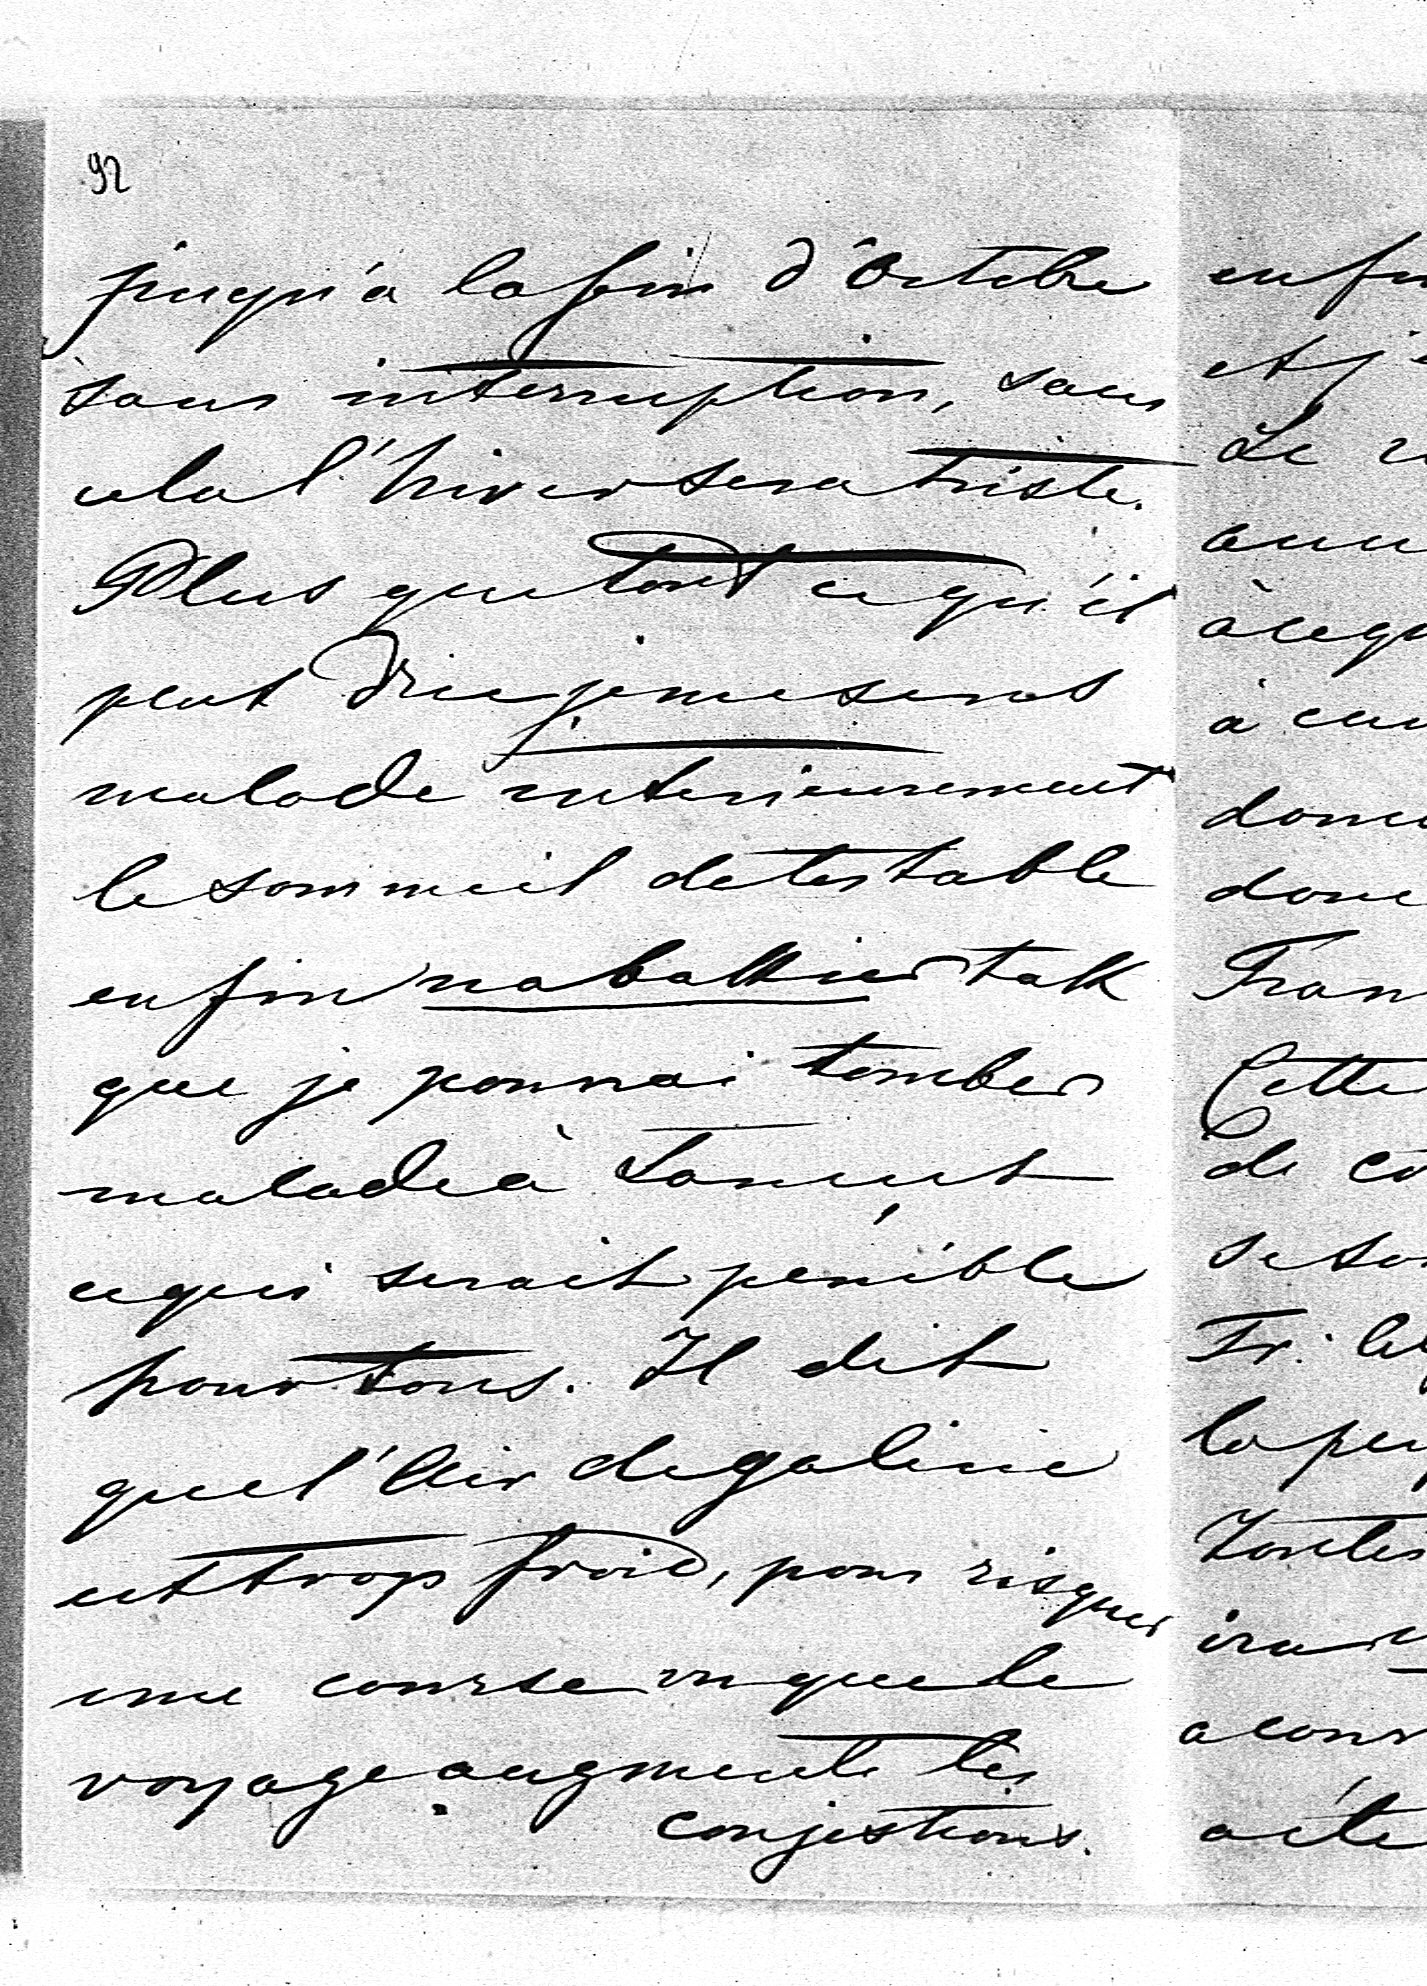 92
jusqu'à la fin d'Octobre
sans interruption, sans
cela l'hiver sera triste.
Plus que tout ce qu'il
peut dire je me sens
malade interieurement
le sommeil detestable
enfin tak
que je pourrai tomber
malade à Lancut
ce qui serait penible
pour tous. Il dit
que l'Air de galicie
est trop froid, pour risquer
une course vu que le
voyage augmente les
conjestions.
enfin
et j'
Le
à ce qu
à
donc
Fran
Cette
de co
se
Fr.
la
Toutes
ira
a
a été